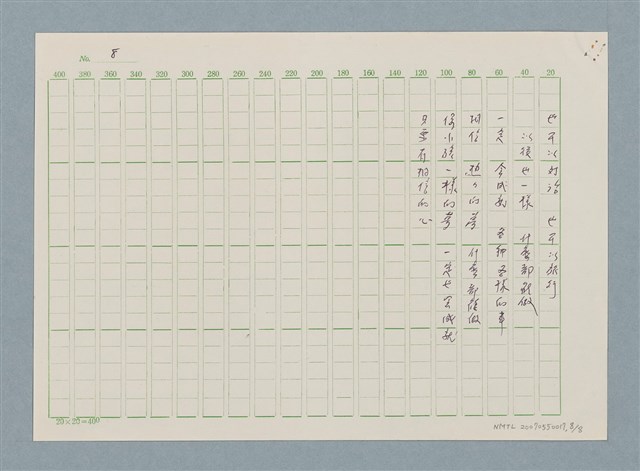 No. 8
400 380 360 340 320 300 280 260 240 220 200 180 160 140 120 100 80 60 40 20
也可以 也可以旅行
以後也一樣 什麼都能做
一定 會成為 各種各樣的事
相信 的夢 什麼都能做
像小孩一樣的夢 一定也會成就
只要有相信的心
20×20=400
NMTL 20090330017, 8/8